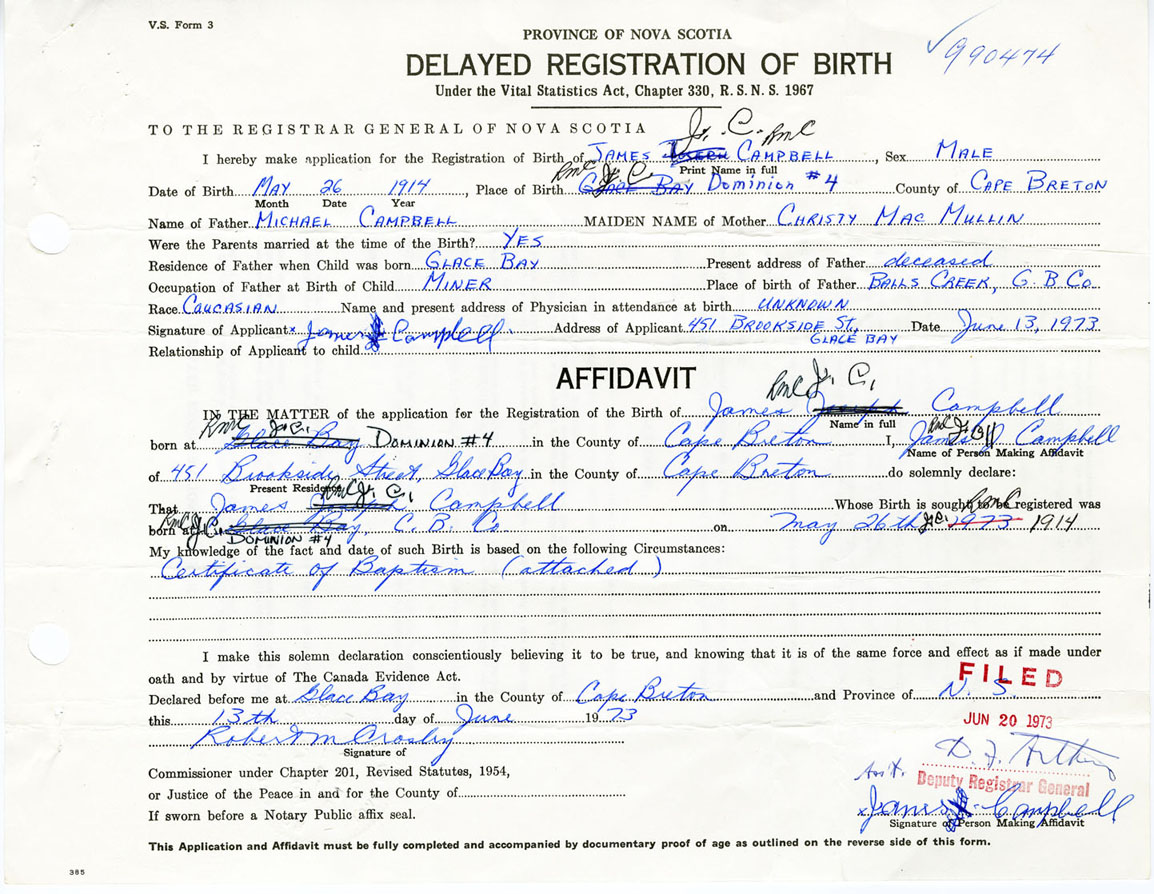 V.S. Form 3
PROVINCE OF NOVA SCOTIA
990474
DELAYED REGISTRATION OF BIRTH
Under the Vital Statistics Act, Chapter 330, R. S. N. S. 1967
TO THE REGISTRAR GENERAL OF NOVA SCOTIA J. C. RMC
I hereby make application for the Registration of Birth of JAMES JOSEPH CAMPBELL, Sex MALE
Print Name in full
RMC J. C.
Date of Birth MAY 26 1914, Place of Birth GLACE BAY Dominion #4 County of CAPE BRETON
Month Date Year
Name of Father MICHAEL CAMPBELL MAIDEN NAME of Mother CHRISTY MAC MULLIN
Were the Parents married at the time of the Birth? YES
Residence of Father when Child was born GLACE BAY Present address of Father deceased
Occupation of Father at Birth of Child MINER Place of birth of Father BALLS CREEK, C. B. Co.
Race CAUCASIAN Name and present address of Physician in attendance at birth UNKNOWN
Signature of Applicant x James Campbell Address of Applicant 451 BROOKSIDE St, Date June 13, 1973
GLACE BAY
Relationship of Applicant to child
AFFIDAVIT
RMC J. C.
IN THE MATTER of the application for the Registration of the Birth of James Joseph Campbell
Name in full
RMC J. C.
born at Glace Bay DOMINION #4 in the County of Cape Breton I, James Campbell
Name of Person Making Affidavit
of 451 Brookside Street, Glace Bay in the County of Cape Breton do solemnly declare:
Present Residence RMC J. C.
That James Joseph Campbell Whose Birth is sought to be registered was
RMC J. C. RMC
born at Glace Bay, C. B. Co on May 26th J.C. 1973 1914
DOMINION #4
My knowledge of the fact and date of such Birth is based on the following Circumstances:
Certificate of Baptism (attached)
I make this solemn declaration conscientiously believing it to be true, and knowing that it is of the same force and effect as if made under
oath and by virtue of The Canada Evidence Act.
FILED
Declared before me at Glace Bay in the County of Cape Breton and Province of N. S.
this 13th day of June 1973
JUN 20 1973
Robert M Crosby
Signature of
Commissioner under Chapter 201, Revised Statutes, 1954,
Asst. Deputy Registrar General
or Justice of the Peace in and for the County of
James Campbell
If sworn before a Notary Public affix seal.
Signature of Person Making Affidavit
This Application and Affidavit must be fully completed and accompanied by documentary proof of age as outlined on the reverse side of this form.
385